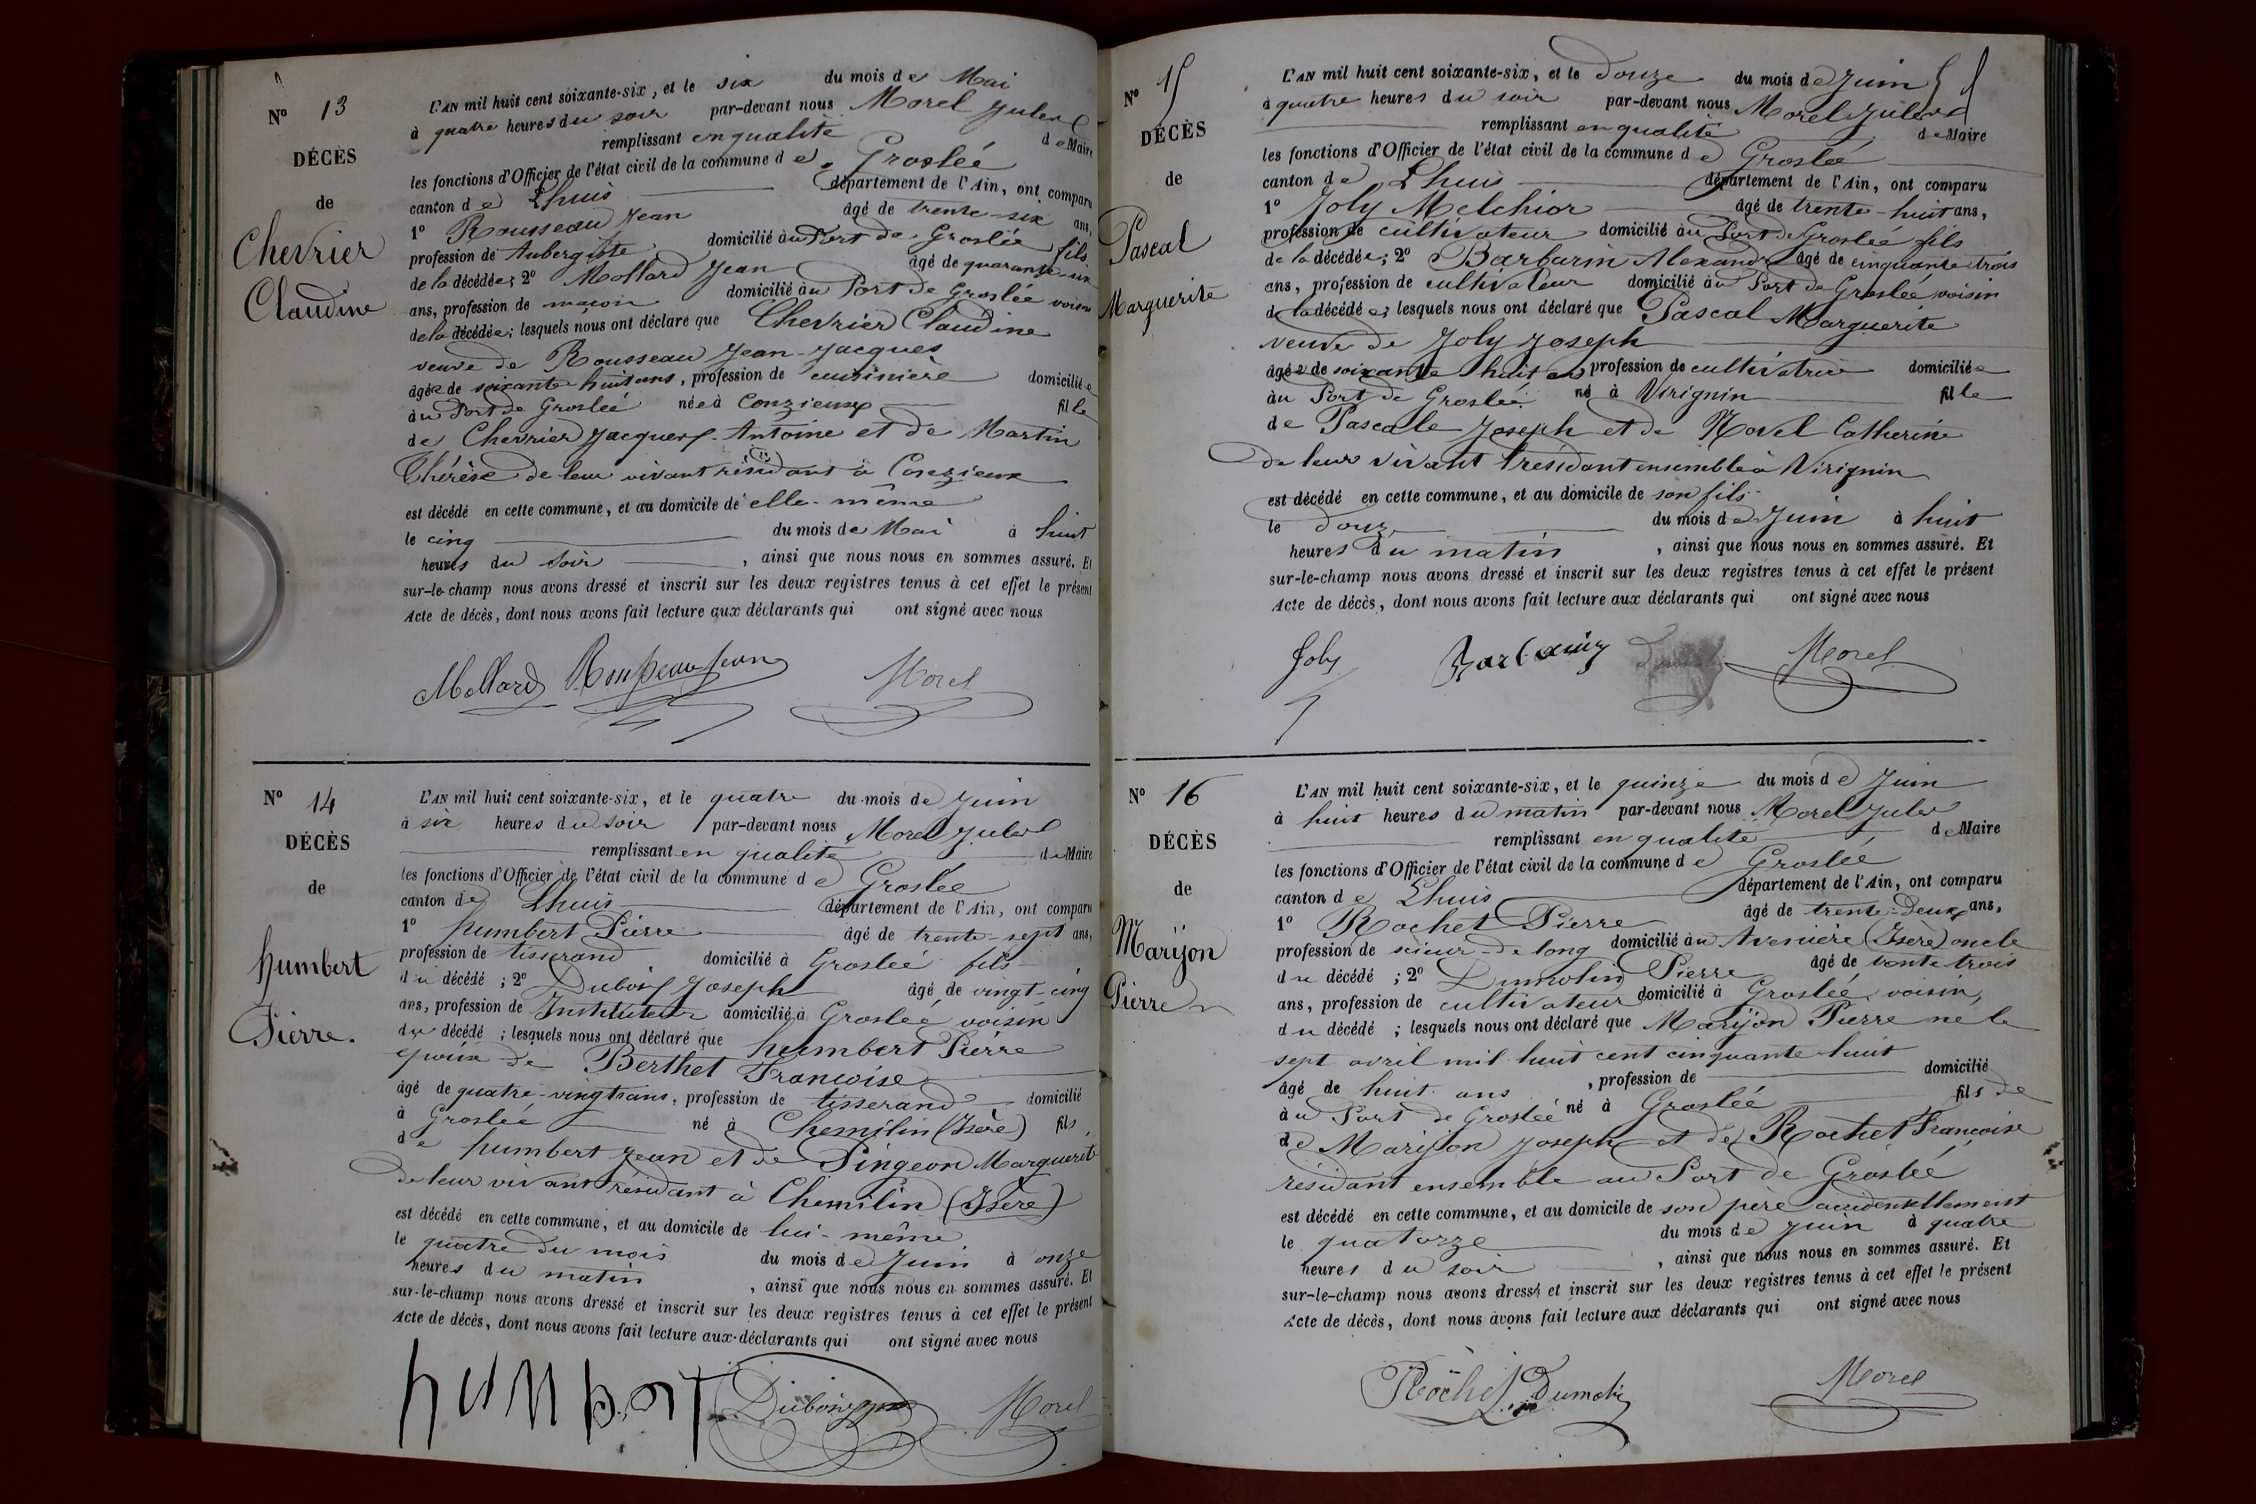 N° 13
DÉCÈS
de
Chevrier
Claudine
L'AN mil huit cent soixante-six, et le six du mois de Mai
à quatre heures du soir par-devant nous Morel Jules
remplissant en qualité de Maire
les fonctions d'Officier de l'état civil de la commune de Groslée
canton de Lhuis département de l'Ain, ont comparu
1° Rousseau Jean âgé de trente-six ans,
profession de Aubergiste domicilié au Port de Groslée fils
de la décédée; 2° Mollard Jean âgé de quarante-six
ans, profession de maçon domicilié au Port de Groslée voisin
de la décédée; lesquels nous ont déclaré que Chevrier Claudine
veuve de Rousseau Jean-Jacques
âgée de soixante huit ans, profession de cuisinière domiciliée
au Port de Groslée née à Conzieux fille
de Chevrier Jacques Antoine et de Martin
Thérèse de leur vivant résidant à Conzieux
est décédé en cette commune, et au domicile de elle-même
le cinq du mois de Mai à huit
heures du soir, ainsi que nous nous en sommes assuré. Et
sur-le-champ nous avons dressé et inscrit sur les deux registres tenus à cet effet le présent
Acte de décès, dont nous avons fait lecture aux déclarants qui ont signé avec nous
Mollard Rousseau Jean Morel
N° 14
DÉCÈS
de
humbert
Pierre.
L'AN mil huit cent soixante-six, et le quatre du mois de Juin
à six heures du soir par-devant nous Morel Jules
remplissant en qualité de Maire
les fonctions d'Officier de l'état civil de la commune de Groslée
canton de Lhuis département de l'Ain, ont comparu
1° humbert Pierre âgé de trente-sept ans,
profession de tisserand domicilié à Groslée fils
du décédé; 2° Dubois Joseph âgé de vingt-cinq
ans, profession de Instituteur domicilié à Groslée voisin
du décédé; lesquels nous ont déclaré que humbert Pierre
époux de Berthet Françoise
âgé de quatre-vingt ans, profession de tisserand domicilié
à Groslée né à Chemilin (Isère) fils
de humbert Jean et de Pingeon Marguerite
de leur vivant résidant à Chemilin (Isère)
est décédé en cette commune, et au domicile de lui-même
le quatre du mois du mois de Juin à onze
heures du matin, ainsi que nous nous en sommes assuré. Et
sur-le-champ nous avons dressé et inscrit sur les deux registres tenus à cet effet le présent
Acte de décès, dont nous avons fait lecture aux déclarants qui ont signé avec nous
humbert Dubois Morel
N° 15
DÉCÈS
de
Pascal
Marguerite
L'AN mil huit cent soixante-six, et le douze du mois de Juin
à quatre heures du soir par-devant nous Morel Jules
remplissant en qualité de Maire
les fonctions d'Officier de l'état civil de la commune de Groslée
canton de Lhuis département de l'Ain, ont comparu
1° Joly Melchior âgé de trente-huit ans,
profession de cultivateur domicilié au Port de Groslée fils
de la décédée; 2° Barbarin Alexandre âgé de cinquante trois
ans, profession de cultivateur domicilié au Port de Groslée voisin
de la décédée; lesquels nous ont déclaré que Pascal Marguerite
veuve de Joly Joseph
âgée de soixante huit ans profession de cultivatrice domiciliée
au Port de Groslée né à Virignin fille
de Pascale Joseph et de Catherine
de leur vivant résidant ensemble à Virignin
est décédé en cette commune, et au domicile de son fils
le douze du mois de Juin à huit
heures du matin, ainsi que nous nous en sommes assuré. Et
sur-le-champ nous avons dressé et inscrit sur les deux registres tenus à cet effet le présent
Acte de décès, dont nous avons fait lecture aux déclarants qui ont signé avec nous
Joly Barbarin Morel
N° 16
DÉCÈS
de
Marijon
Pierre
L'AN mil huit cent soixante-six, et le quinze du mois de Juin
à huit heures du matin par-devant nous Morel Jules
remplissant en qualité de Maire
les fonctions d'Officier de l'état civil de la commune de Groslée
canton de Lhuis département de l'Ain, ont comparu
1° Rochet Pierre âgé de trente-deux ans,
profession de scieur de long domicilié au Avenière (Isère) oncle
du décédé; 2° Dumolin Pierre âgé de trente-trois
ans, profession de cultivateur domicilié à Groslée voisin
du décédé; lesquels nous ont déclaré que Marijon Pierre né le
sept avril mil huit cent cinquante-huit
âgé de huit ans, profession de domicilié
au Port de Groslée né à Groslée fils de
de Marijon Joseph et de Rochet Françoise
résidant ensemble au Port de Groslée
est décédé en cette commune, et au domicile de son père accidentellement
le quatorze du mois de Juin à quatre
heures du soir, ainsi que nous nous en sommes assuré. Et
sur-le-champ nous avons dressé et inscrit sur les deux registres tenus à cet effet le présent
Acte de décès, dont nous avons fait lecture aux déclarants qui ont signé avec nous
Rochet Dumolin Morel